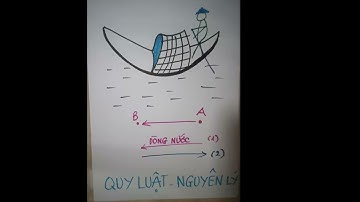 B A
DÒNG NƯỚC (1)
(2)
QUY LUẬT - NGUYÊN LÝ